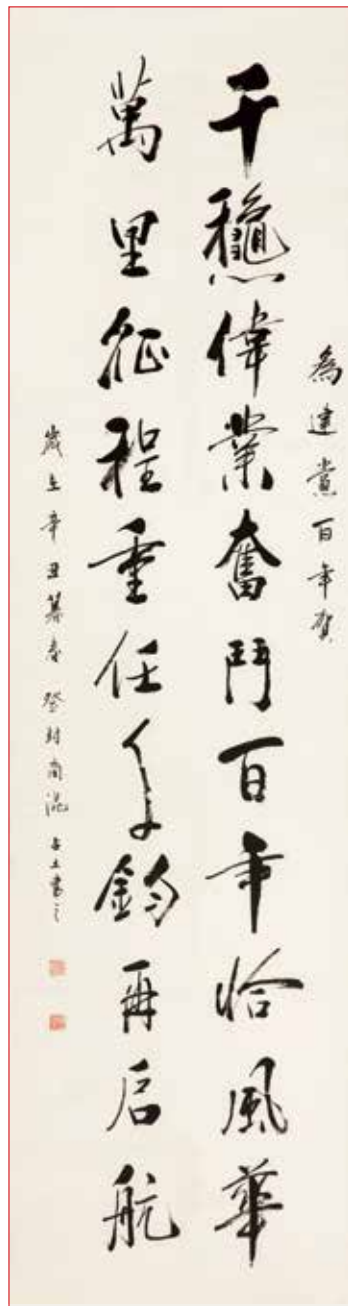 為建党百年賀
千龝偉業奮鬥百年恰風華
萬里征程重任千鈞再启航
歲在辛丑暮春 登封 書之